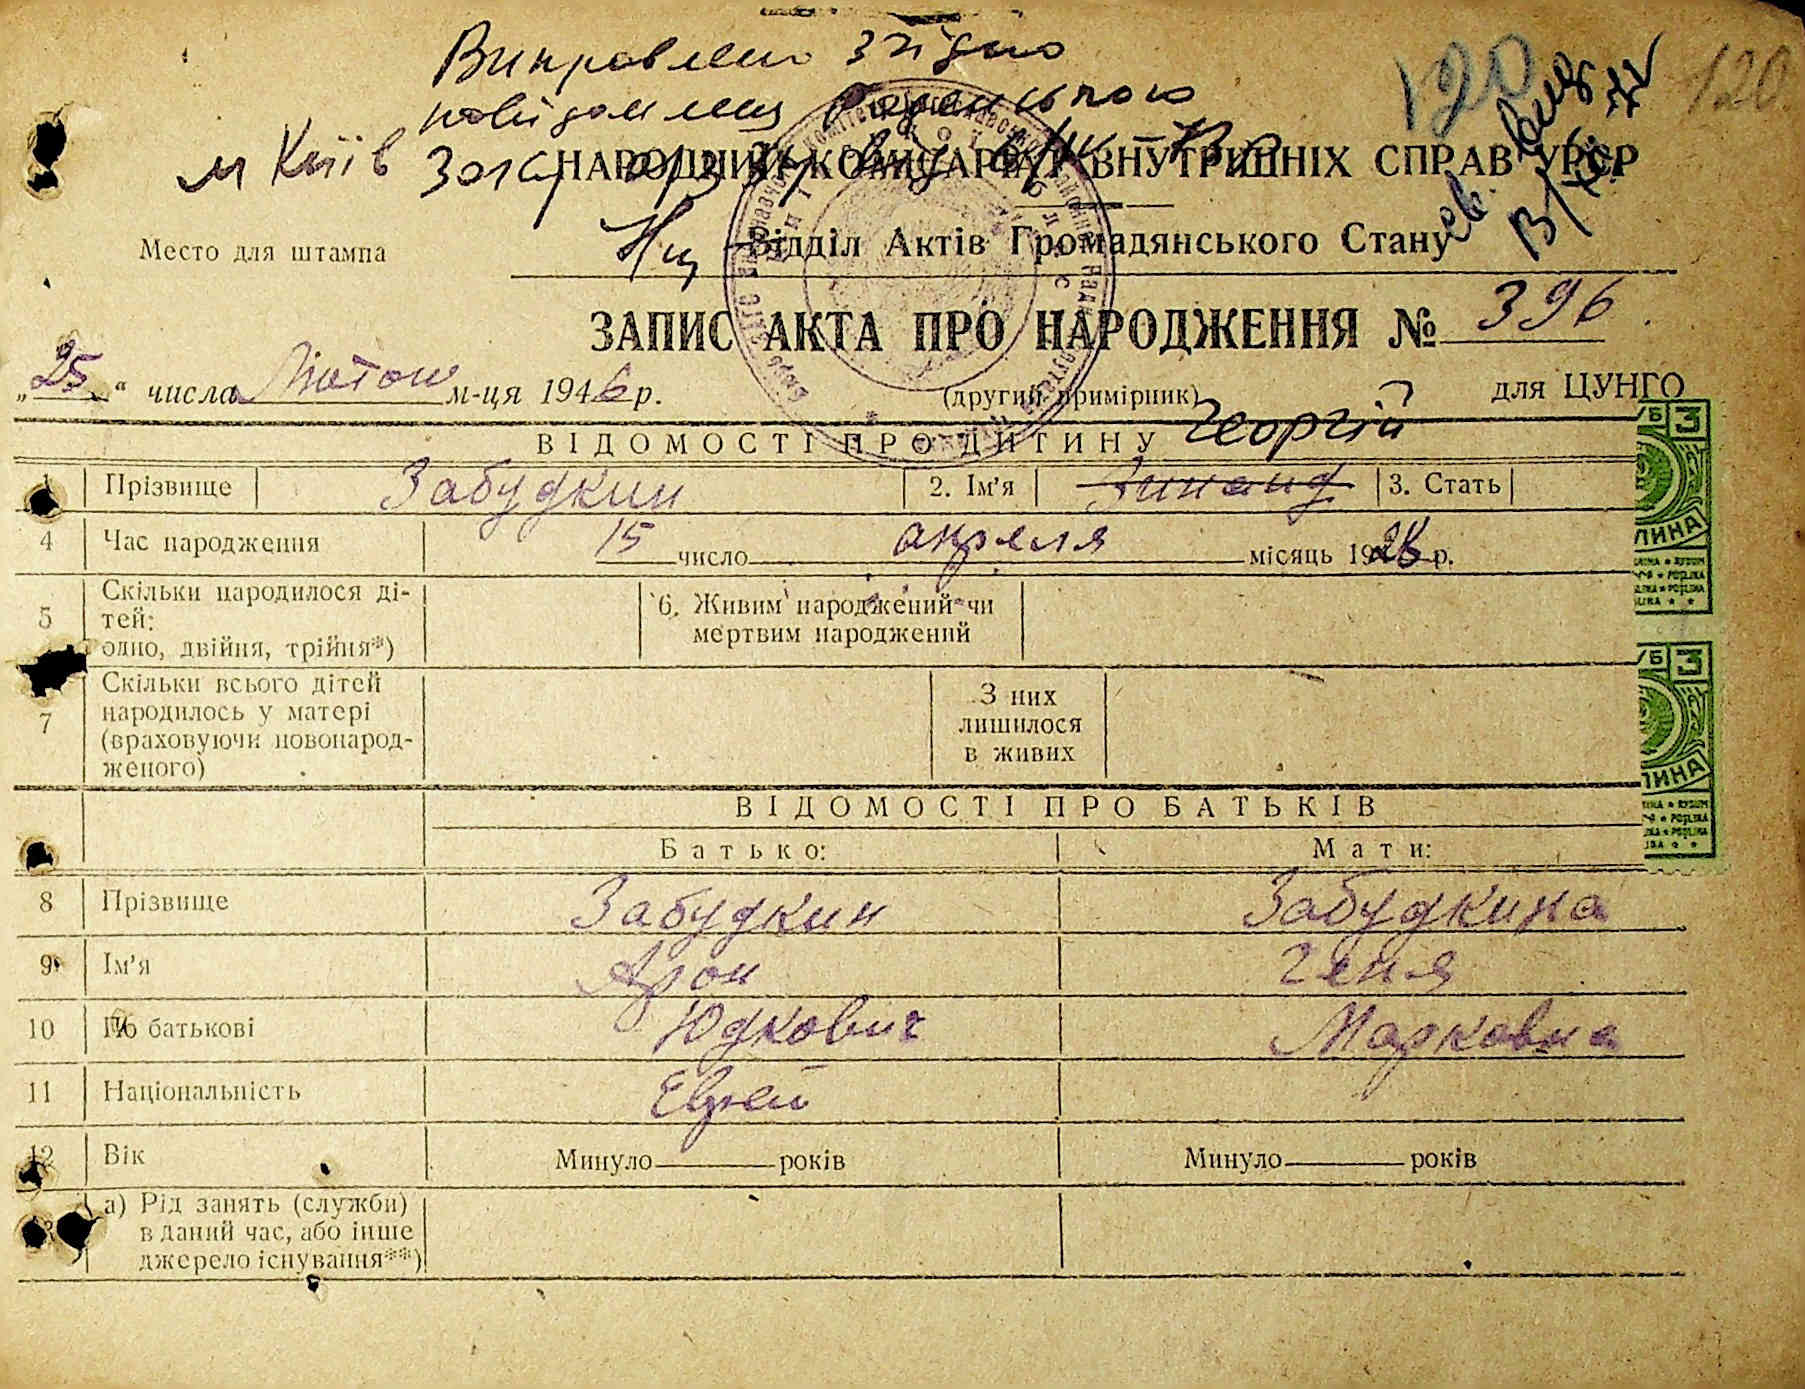 Виправлено згідно
м Київ
120
120
НАРОДНИЙ КОМІСАРІАТ ВНУТРІШНІХ СПРАВ УРСР
Место для штампа
Відділ Актів Громадянського Стану
ЗАПИС АКТА ПРО НАРОДЖЕННЯ № 396
„25“ числа Лютого м-ця 1946 р.
(другий примірник)
для ЦУНГО
ВІДОМОСТІ ПРО ДИТИНУ Георгій
1 Прізвище Забудкин 2. Ім'я 3. Стать
4 Час народження 15 число апреля місяць 1928 р.
5 Скільки народилося ді-
тей:
одно, двійня, трійня*)
6. Живим народжений чи
мертвим народжений
7 Скільки всього дітей
народилось у матері
(враховуючи новонарод-
женого)
З них
лишилося
в живих
ВІДОМОСТІ ПРО БАТЬКІВ
Батько: Мати:
8 Прізвище Забудкин Забудкина
9 Ім'я Арон Геня
10 По батькові Юдкович Марковна
11 Національність Еврей
12 Вік Минуло років Минуло років
13 а) Рід занять (служби)
в даний час, або інше
джерело існування**)